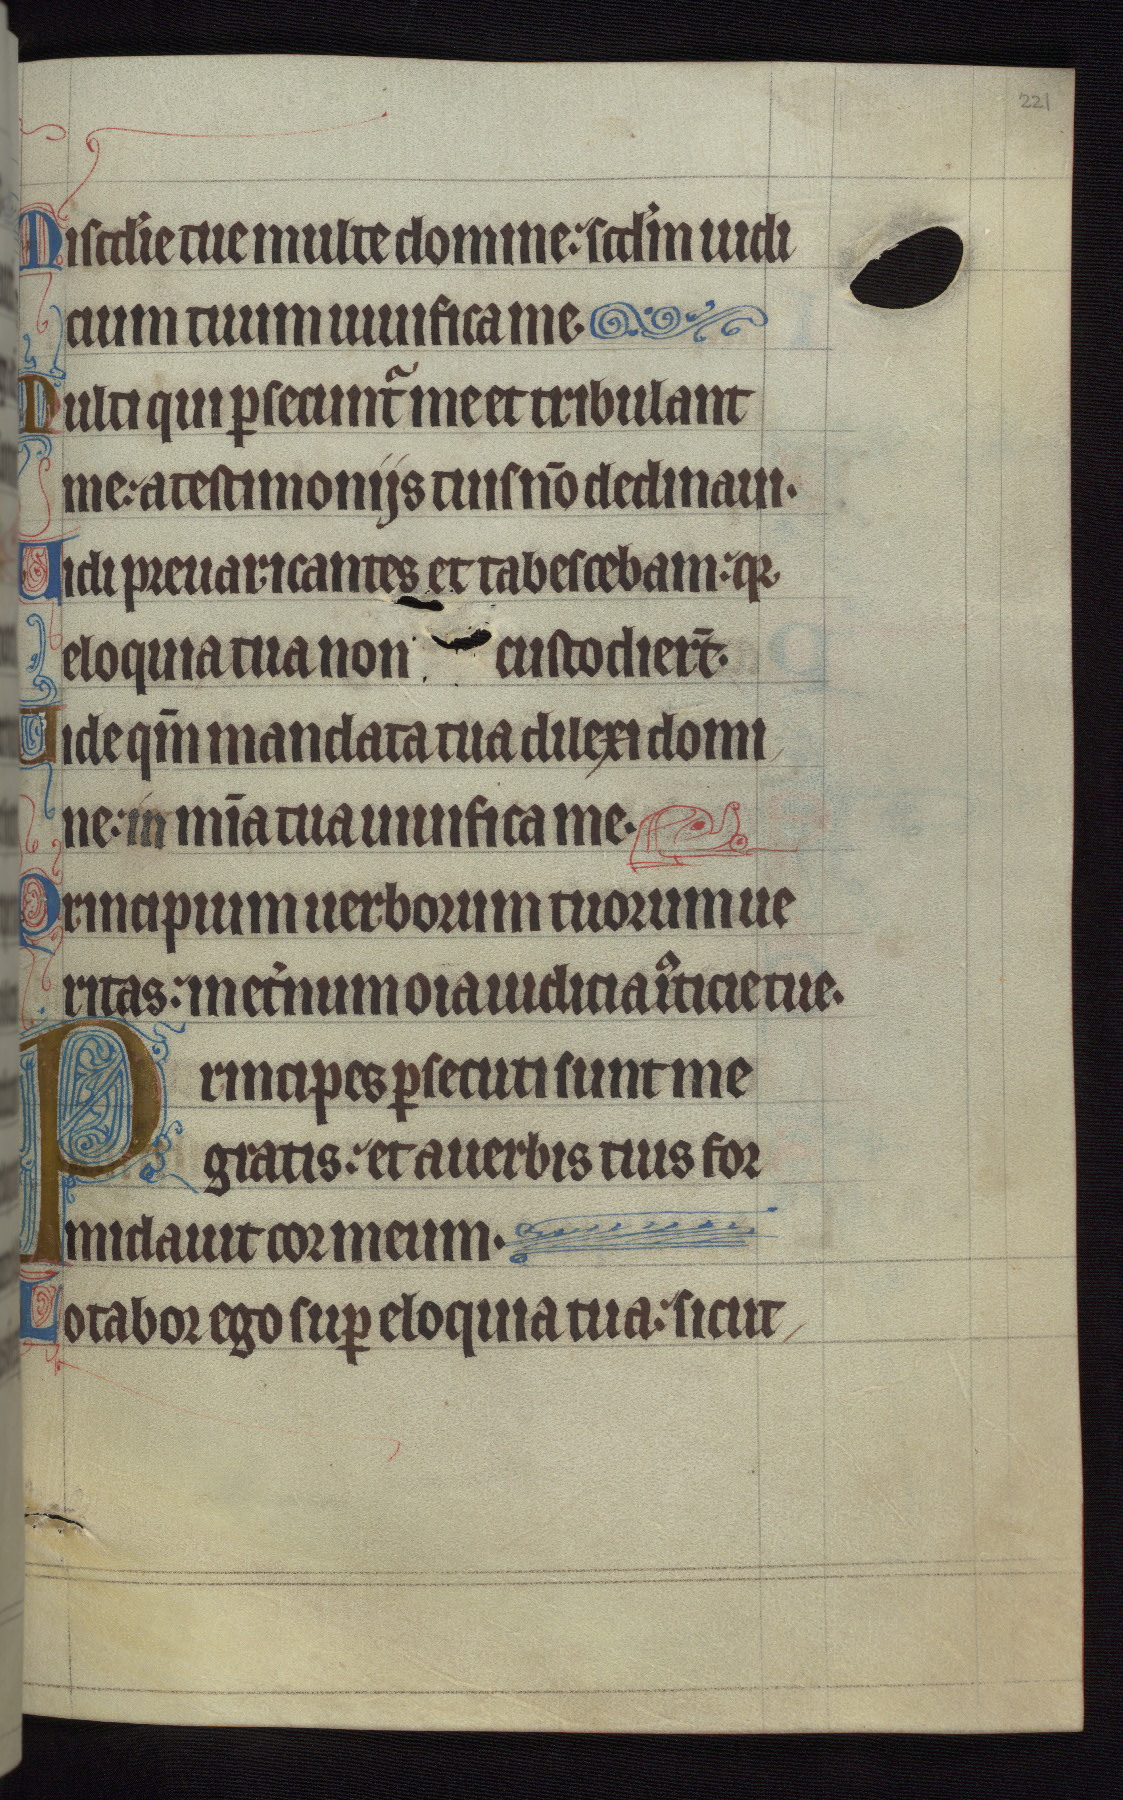 221
Miscdie tue multe domine: scdm iudi
cium tuum uiuifica me.
Multi qui ꝑsecunt me et tribulant
me: a testimonijs tuis nō declinaui.
Uidi preuaricantes et tabescebam: qꝛ
eloquia tua non custodiert̄.
Uide qm̄ mandata tua dilexi domi
ne: in mīa tua uiuifica me.
Principium uerborum tuorum ue
ritas: in etnum oīa iudicia iꝰticie tue.
Principes ꝑsecuti sunt me
gratis: et a uerbis tuis for
midauit cor meum.
Letabor ego suꝑ eloquia tua: sicut